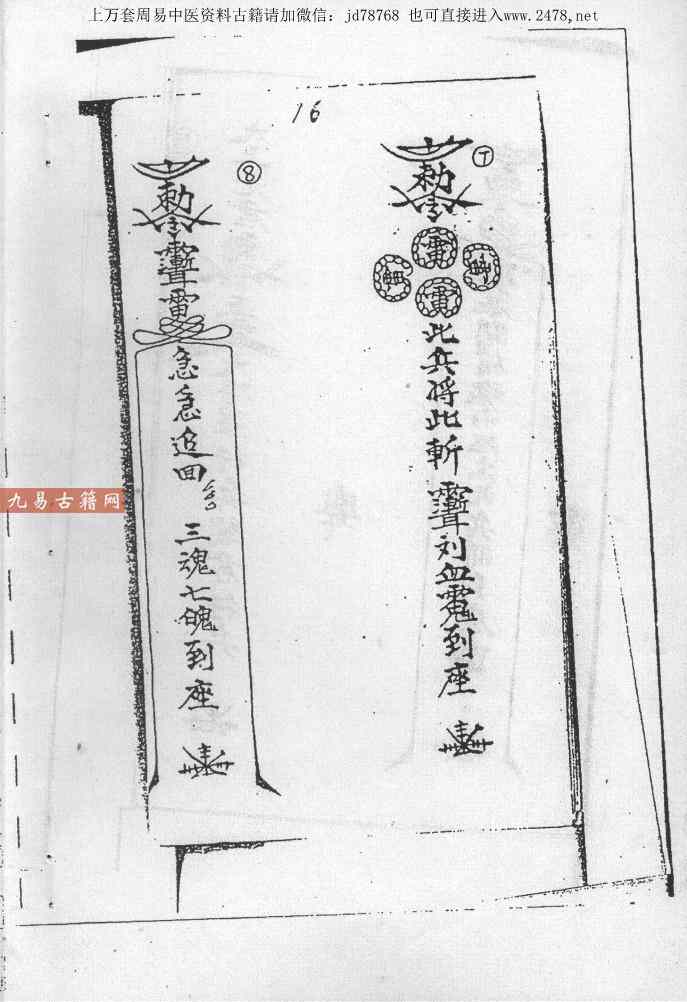 上万套周易中医资料古籍请加微信：jd78768 也可直接进入www.2478,net
16
⑦
勅令
雷
雷
此兵将此斬
到座
⑧
勅令
雷
急急追回
三魂七魄到座
九易古籍网